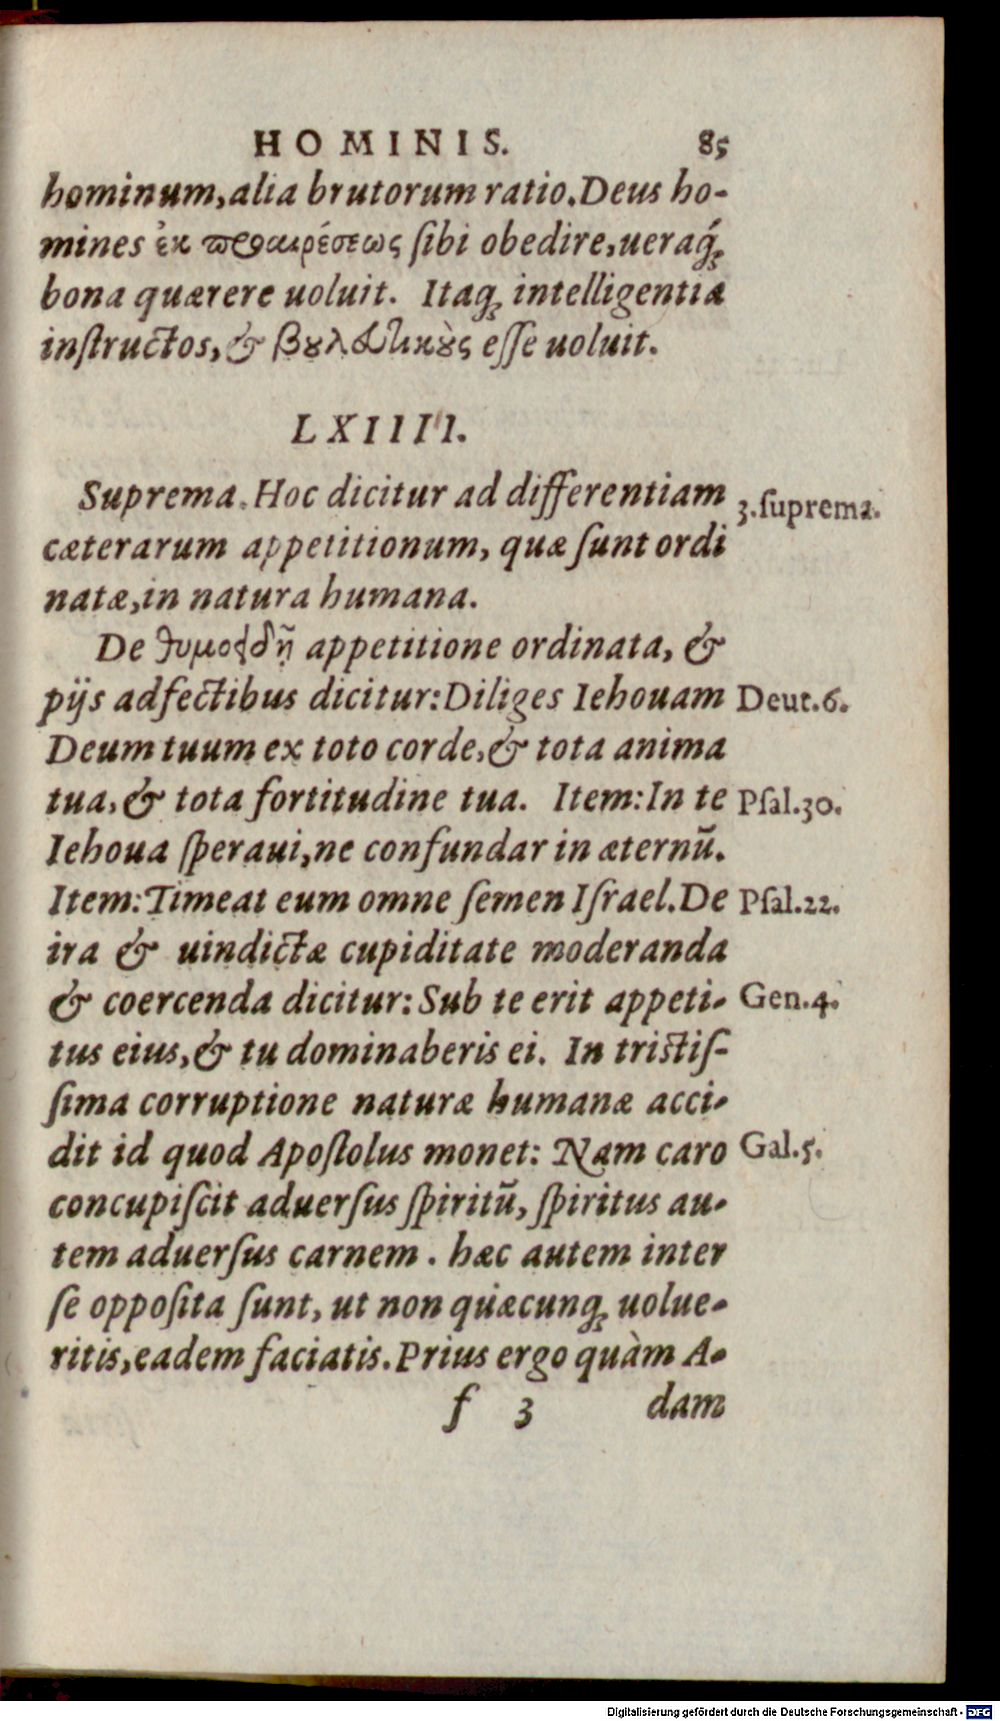 HOMINIS. 85
hominum, alia brutorum ratio. Deus ho-
mines ἐκ προαιρέσεως ſibi obedire, ueraq́;
bona quærere uoluit. Itaq; intelligentiæ
inſtructos, & βουλευτικοὺς eſſe uoluit.
LXIIII.
Suprema. Hoc dicitur ad differentiam 3. ſuprema.
cæterarum appetitionum, quæ ſunt ordi
natæ, in natura humana.
De θυμοειδῆ appetitione ordinata, &
pijs adfectibus dicitur: Diliges Iehouam Deut. 6.
Deum tuum ex toto corde, & tota anima
tua, & tota fortitudine tua. Item: In te Pſal. 30.
Iehoua ſperaui, ne confundar in æternũ.
Item: Timeat eum omne ſemen Iſrael. De Pſal. 22.
ira & uindictæ cupiditate moderanda
& coercenda dicitur: Sub te erit appeti- Gen. 4.
tus eius, & tu dominaberis ei. In triſtiſ-
ſima corruptione naturæ humanæ acci-
dit id quod Apoſtolus monet: Nam caro Gal. 5.
concupiſcit aduerſus ſpiritũ, ſpiritus au-
tem aduerſus carnem. hæc autem inter
ſe oppoſita ſunt, ut non quæcunq; uolue-
ritis, eadem faciatis. Prius ergo quàm A-
f 3 dam
Digitalisierung gefördert durch die Deutsche Forschungsgemeinschaft - DFG